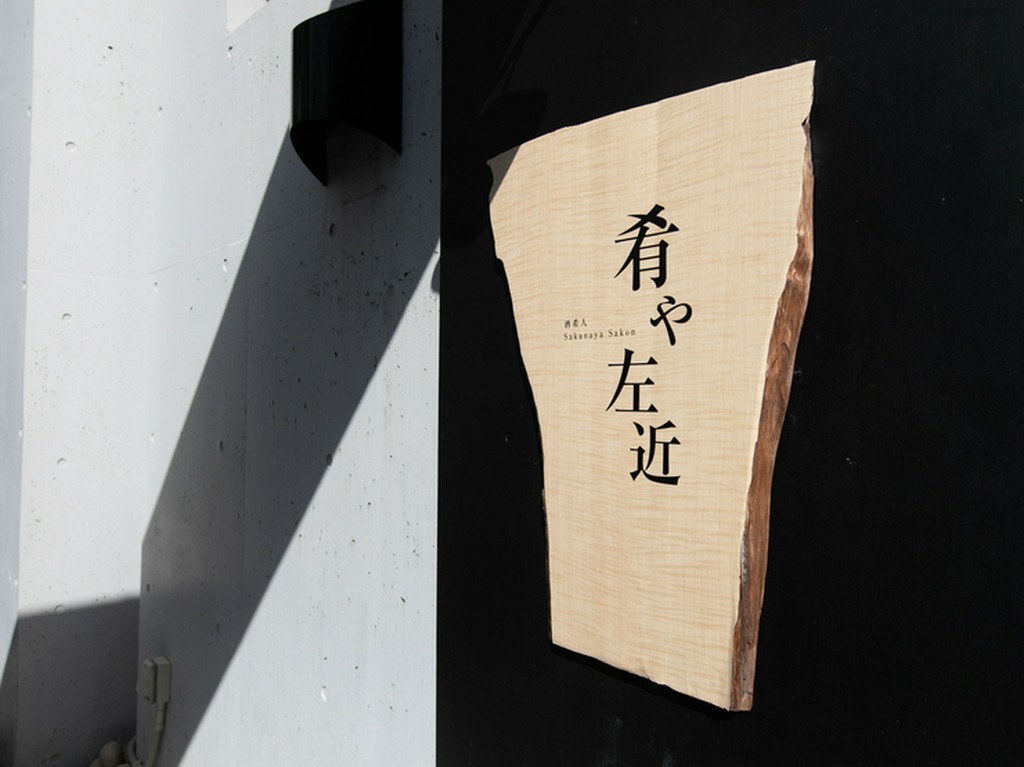 肴や左近
酒希人
Sakanaya Sakon